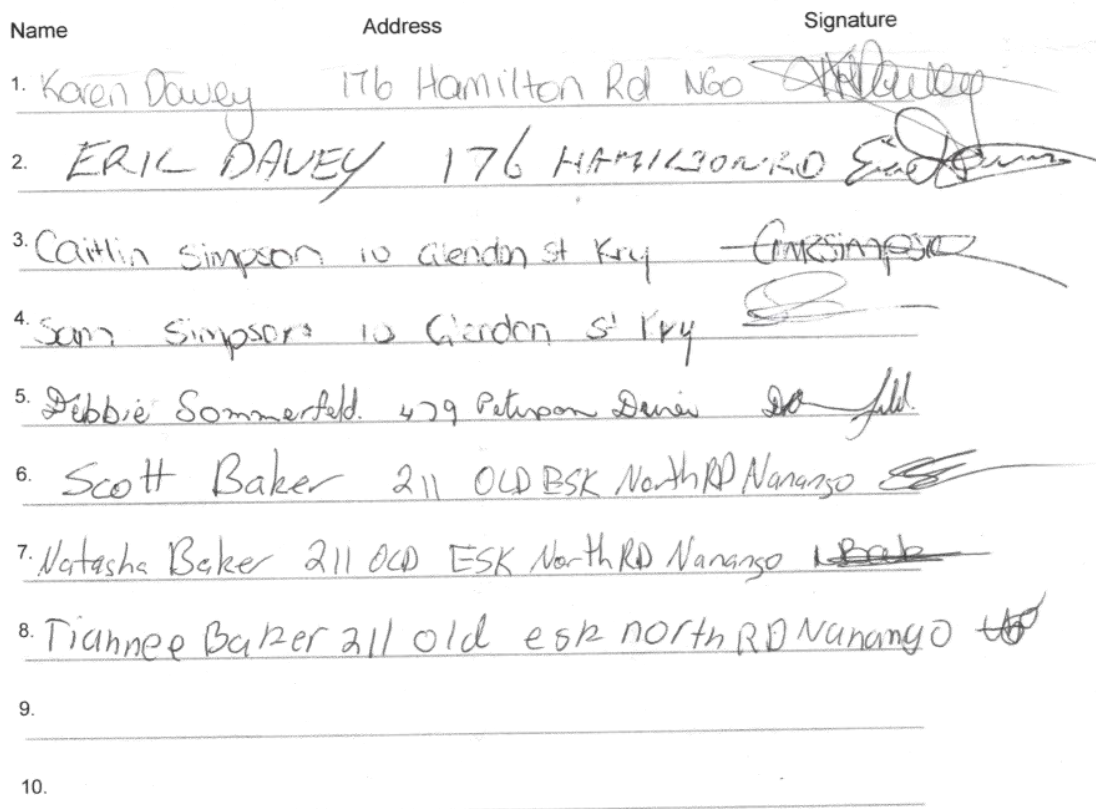 Name Address Signature
1. Karen Davey 176 Hamilton Rd NGO KADavey
2. ERIC DAVEY 176 HAMILTON RD
3. Caitlin Simpson 10 Glendon st Kry CMKSimpson
4. Sam Simpson 10 Glendon St Kry
5. Debbie Sommerfeld. 479 Peterson Drive
6. Scott Baker 211 OLD ESK North RD Nanango
7. Natasha Baker 211 OLD ESK North RD Nanango
8. Tiahnee Baker 211 old esk north RD Nanango
9.
10.